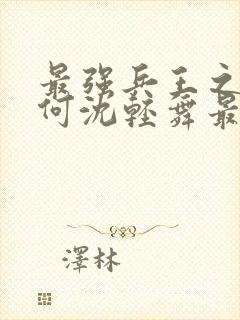 最强兵王之
何沈轻舞最
泽林